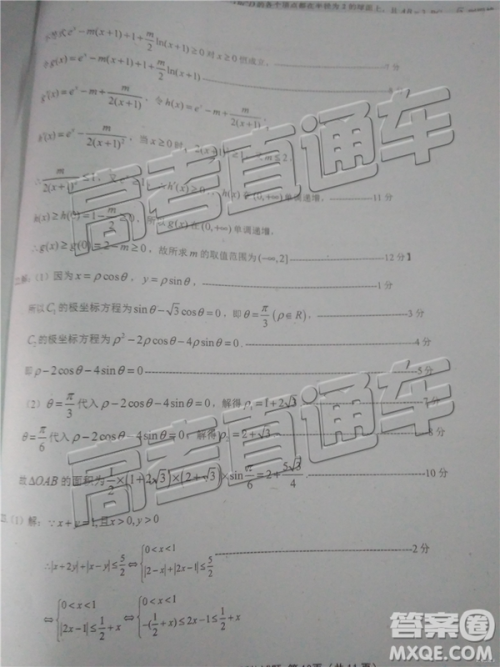 的各个顶点都在半径为
e^x-m(x+1)+1+\frac{m}{2}ln(x+1)≥0对x≥0恒成立，7分
g(x)=e^x-m(x+1)+1+\frac{m}{2}ln(x+1)
g'(x)=e^x-m+\frac{m}{2(x+1)}，令h(x)=e^x-m+\frac{m}{2(x+1)}，
h'(x)=e^x-\frac{m}{2(x+1)^2}，当x≥0时，
在(0,+∞)单调递增，11分
h(x)≥h(0)=1-\frac{m}{2}≥0，所以g(x)在(0,+∞)单调递增，
∴g(x)≥g(0)=2-m≥0，故所求m的取值范围为(-∞,2] 12分
解：(1) 因为x=ρcosθ，y=ρsinθ，
所以C₂的极坐标方程为sinθ-√3cosθ=0，即θ=\frac{π}{3}(ρ∈R)，3分
的极坐标方程为ρ²-2ρcosθ-4ρsinθ=0. 4分
即ρ-2cosθ-4sinθ=0 5分
(2) θ=\frac{π}{3}代入ρ-2cosθ-4sinθ=0，解得ρ₁=1+2√3 7分
θ=\frac{π}{6}代入ρ-2cosθ-4sinθ=0，解得ρ₂=2+√3 8分
故ΔOAB的面积为\frac{1}{2}×(1+2√3)×(2+√3)×sin\frac{π}{6}=2+\frac{5√3}{4} 10分
(1) 解：∵x+y=1，且x>0,y>0
∴|x+2y|+|x-y|≤\frac{5}{2}⇔{0<x<1 |2-x|+|2x-1|≤\frac{5}{2} 2分
⇔{0<x<1 |2x-1|≤\frac{1}{2}+x ⇔{0<x<1 -(\frac{1}{2}+x)≤2x-1≤\frac{1}{2}+x
高考直通车
高考直通车
答案圈
MXQE.COM